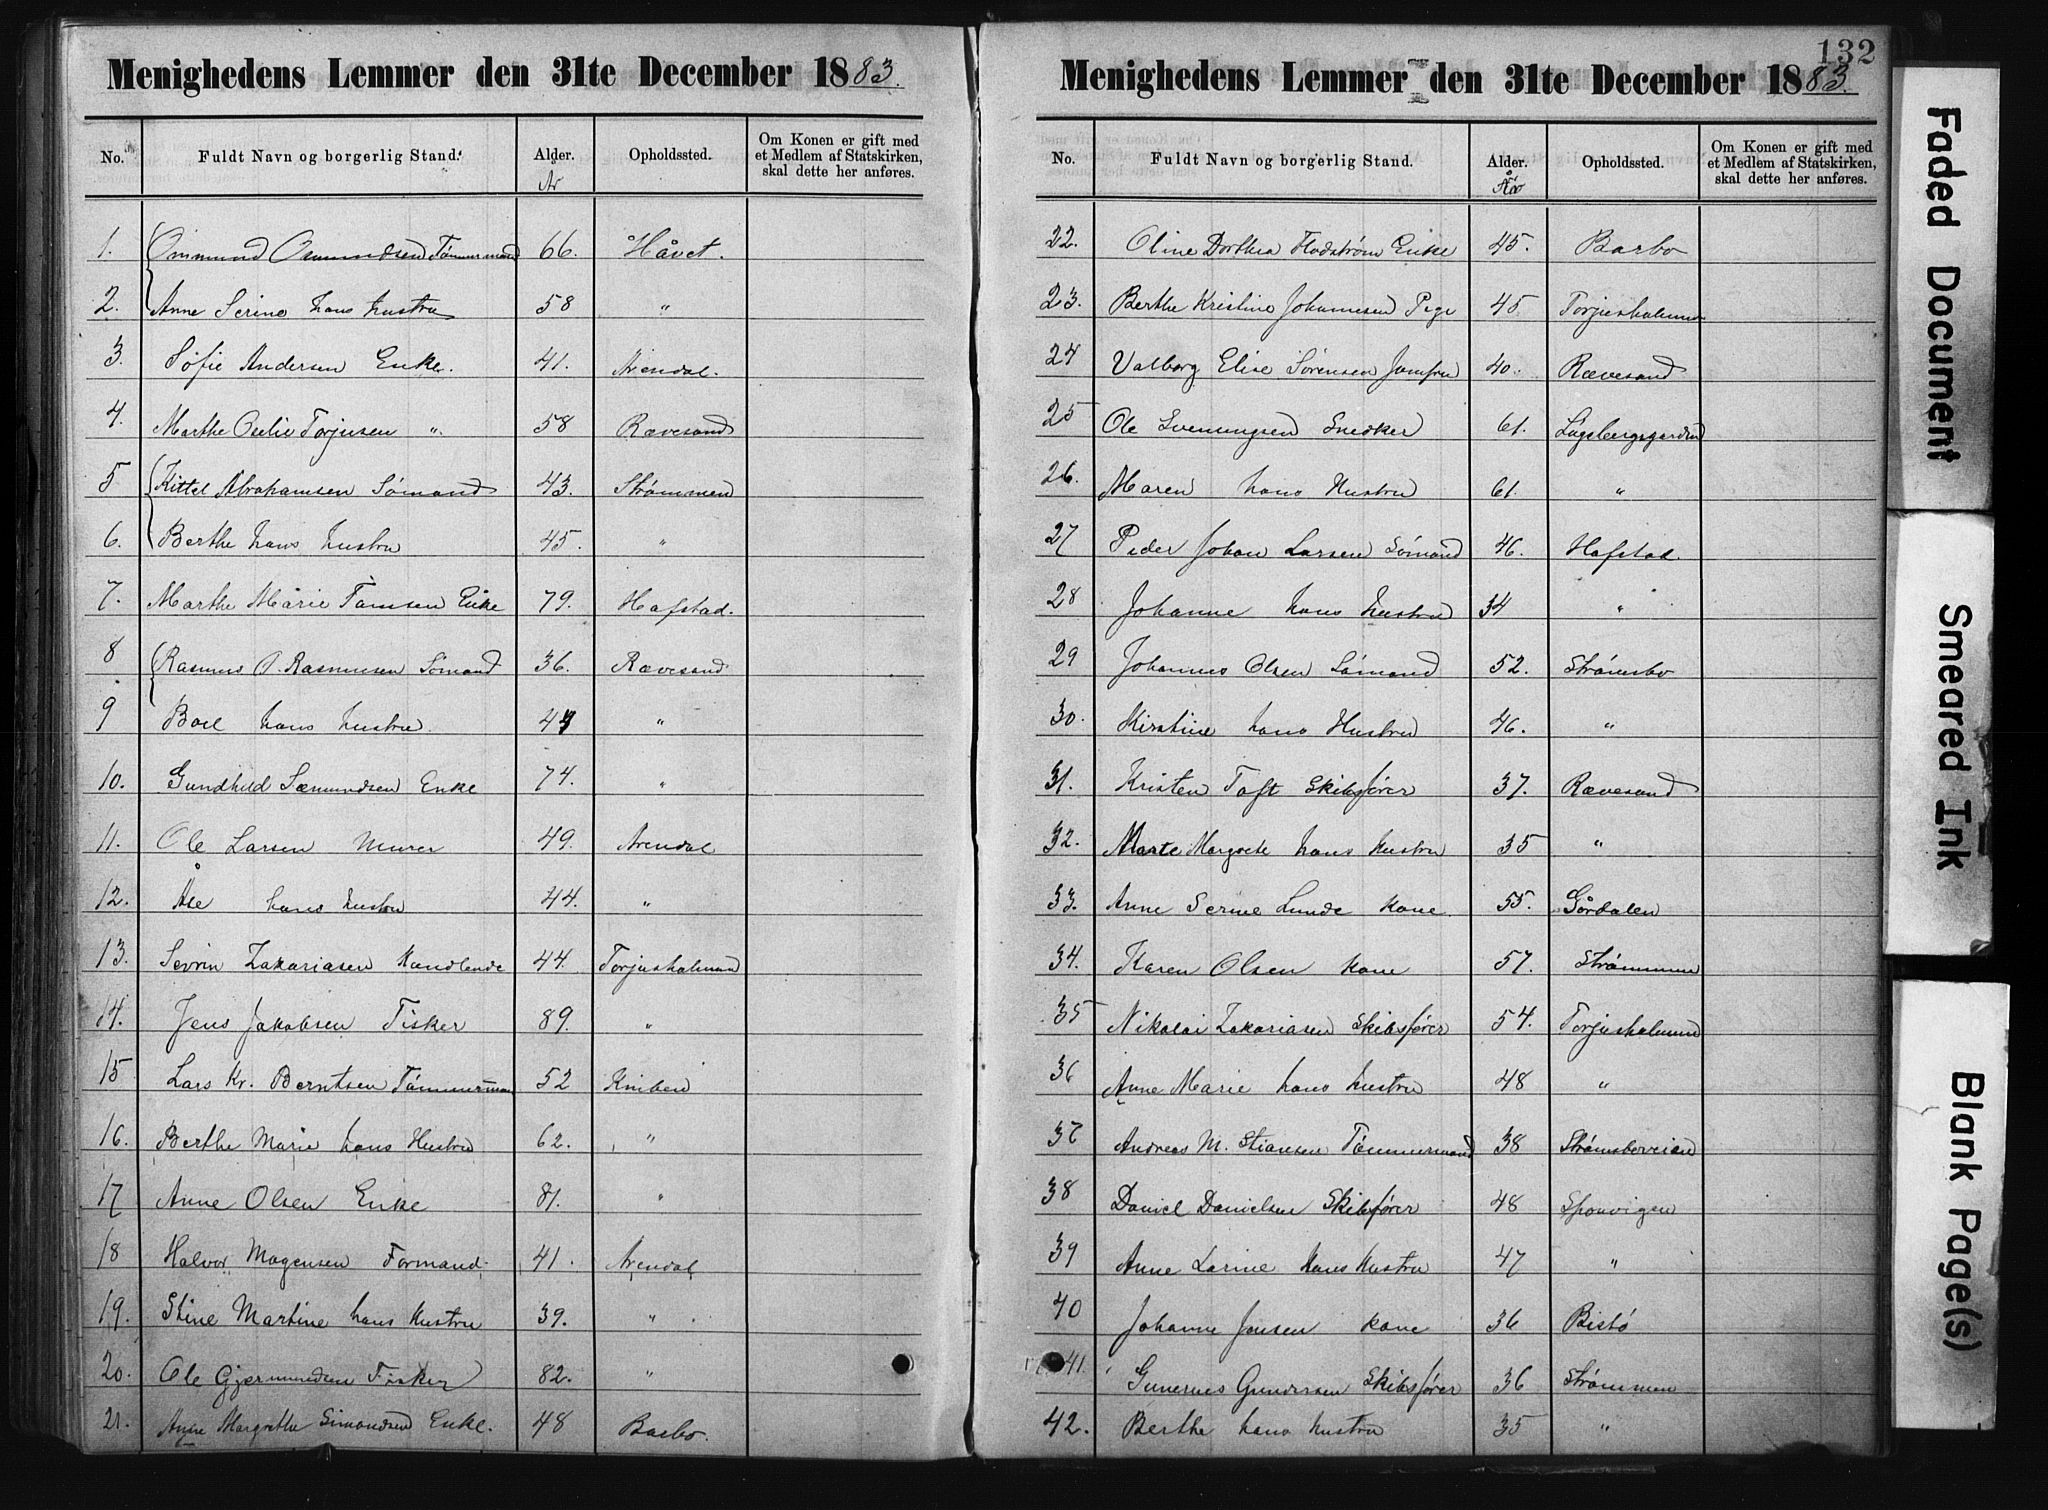 Menighedens Lemmer den 31te December 1883.
No. Fuldt Navn og borgerlig Stand. Alder. Opholdssted. Om Konen er gift med et Medlem af Statskirken, skal dette her anføres.
År
1. Ommund Ommundsen Tømmermand 66. Håvet.
2. Anne Serine hans hustru 58 "
3. Sofie Andersen Enke. 41. Arendal.
4. Marthe Torjusen " 58 Rævesand
5 Kittel Abrahamsen Sømand 43. Strømmen
6. Berthe hans hustru 45. "
7. Marthe Marie Tomsen Enke 79. Hafstad.
8 Rasmus O. Rasmusen Sømand 36. Rævesand
9 Boel hans hustru "
10. Gundhild Sæmundsen Enke 74. "
11. Ole Larsen Murer 49. Arendal
12. Åse hans hustru 44. "
13. Sevrin Zakariasen Handlende 44. Torjusholmen
14. Jens Jakobsen Fisker 89. "
15 Lars Kr. Berntsen Tømmerman 52 Kniben
16. Berthe Marie hans Hustru 62. "
17 Anne Olsen Enke 81. "
18 Halvor Mogensen Formand 41. Arendal
19. Stine Martine hans Hustru 39. "
20. Ole Gjermundsen Fisker 82. "
21. Anne Margrethe Simondsen Enke. 48 Barbo.
132
Menighedens Lemmer den 31te December 1883.
No. Fuldt Navn og borgerlig Stand. Alder. Opholdssted. Om Konen er gift med et Medlem af Statskirken, skal dette her anføres.
År
22. Oline Dorthea Flodstrøm Enke 45. Barbo
23. Berthe Kristine Johannesen Pige 45 Torjusholmen
24 Valborg Elise Sørensen Jomfru 40. Rævesand
25 Ole Sveningsen Snedker 61.
26. Maren hans Hustru 61. "
27 Peder Johan Larsen Sømand 46. Hafstad.
28 Johanne hans hustru 34 "
29 Johannes Olsen Sømand 52. Strømsbo
30. Kirstine hans Hustru 46. "
31. Kristen Toft Skibsfører 37. Rævesand
32. Marte Margrete hans hustru 35 "
33. Anne Serine Lunde kone. 55. Gårdalen
34. Karen Olsen kone 57. Strømmen
35 Nikolai Zakariasen Skibsfører 54. Torjusholmen
36 Anne Marie hans hustru 48 "
37 Andreas M. Stiansen Tømmermand 38 Strømsboveien
38 Daniel Danielsen Skibsfører 48 Sponvigen
39 Anne Larine Hans Hustru 47 "
40 Johanne Jensen kone 36 Bistø
41. Gunerius Gundersen Skibsfører 36 Strømmen
42. Berthe hans hustru 35 "
Faded Document
Smeared Ink
Blank Page(s)